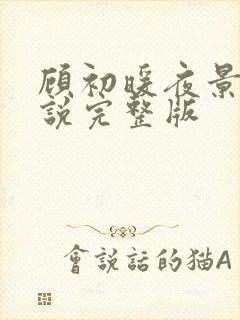 顾初暖夜景
說完整版
會說話的猫A